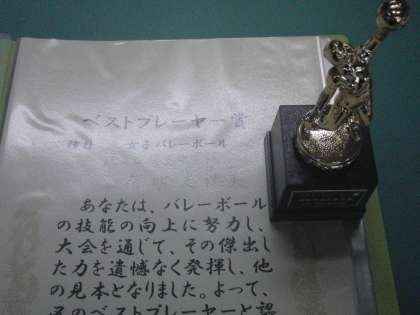 ベストプレーヤー賞
種目 女子バレーボール
あなたは、バレーボール
の技能の向上に努力し、
大会を通じて、その傑出し
た力を遺憾なく発揮し、他
の見本となりました。よって、
そのベストプレーヤーと認